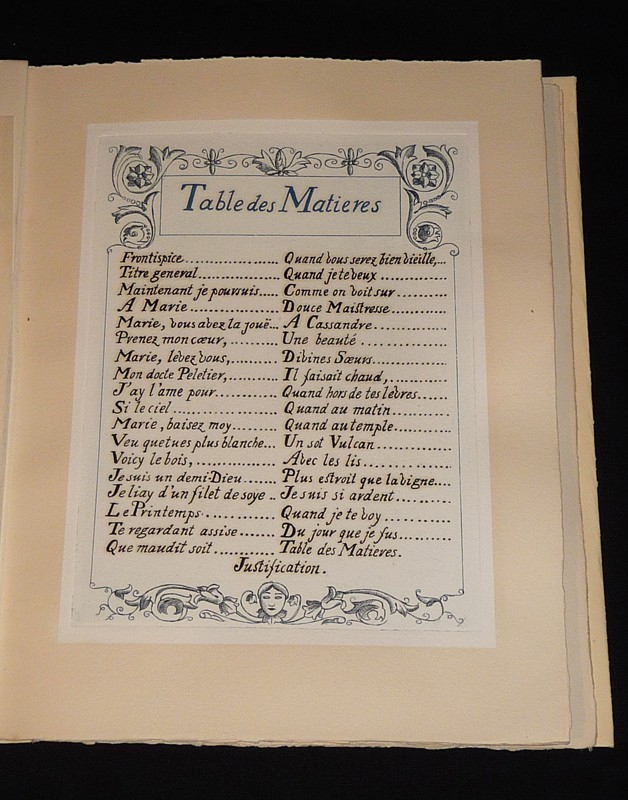 Table des Matieres
Frontispice..................
Titre general................
Maintenant je poursuis.....
A Marie....................
Marie, vous avez la jouë...
Prenez mon cœur,..........
Marie, levez vous,..........
Mon docte Peletier,..........
J'ay l'ame pour.............
Si le ciel....................
Marie, baisez moy.........
Veu que tu es plus blanche...
Voicy le bois,................
Je suis un demi-Dieu.......
Je liay d'un filet de soye..
Le Printemps.............
Te regardant assise.......
Que maudit soit............
Quand vous serez bien vieille,...
Quand je te veux............
Comme on voit sur..........
Douce Maistresse............
A Cassandre................
Une beauté................
Divines Sœurs..............
Il faisait chaud,.............
Quand hors de tes levres......
Quand au matin............
Quand au temple...........
Un sot Vulcan..............
Avec les lis.................
Plus estroit que la vigne....
Je suis si ardent............
Quand je te voy............
Du jour que je fus..........
Table des Matieres.
Justification.